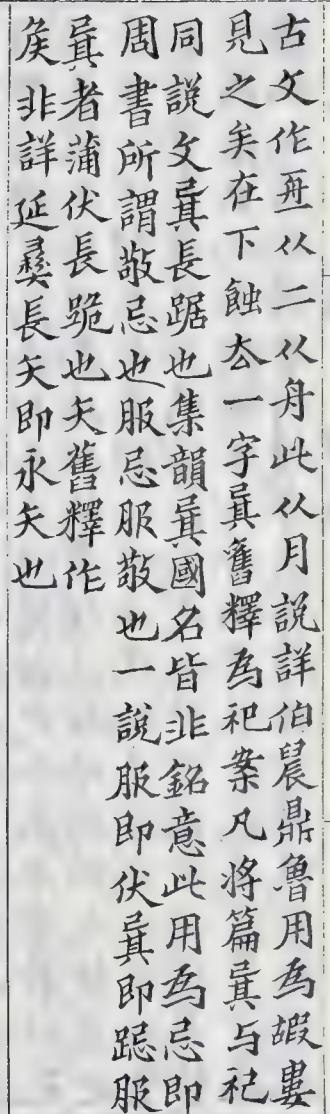 古文作𠄨从二从舟此从月說詳伯晨鼎魯用爲嘏婁
見之矣在下蝕去一字㠱舊釋爲祀案凡將篇㠱与祀
同說文㠱長踞也集韻㠱國名皆非銘意此用爲忌即
周書所謂敬忌也服忌服敬也一說服即伏㠱即跽服
㠱者蒲伏長跪也矢舊釋作
矦非詳延彝長矢即永矢也